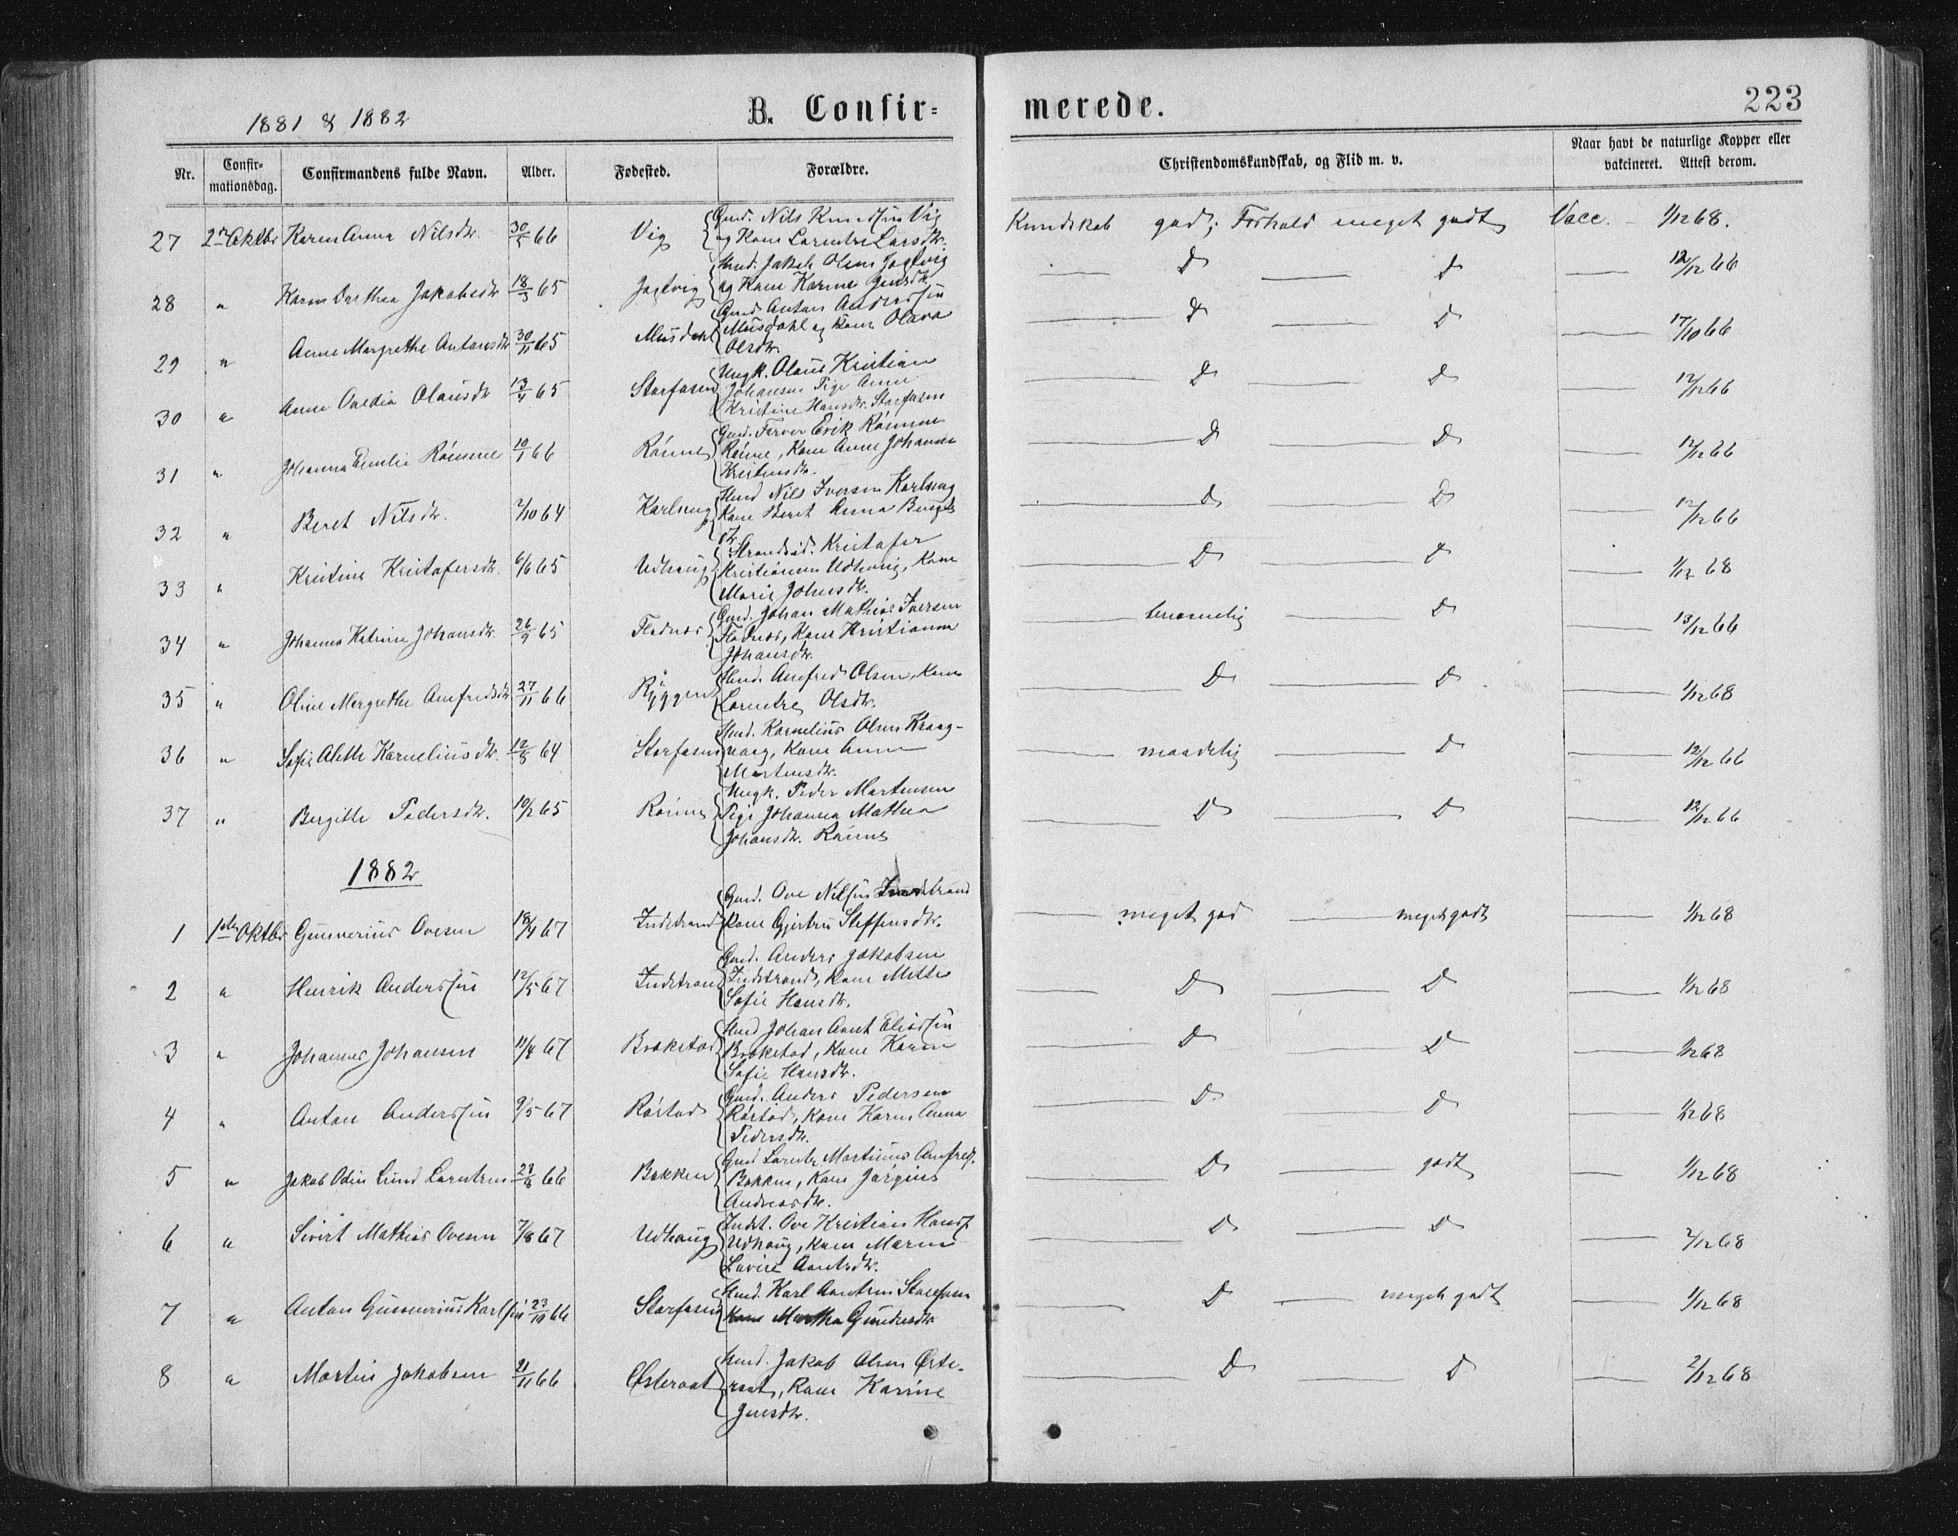 1881 & 1882
B. Confir-
merede.
223
Nr.
Confir-
mationsdag.
Confirmandens fulde Navn.
Alder.
Fødested.
Forældre.
Christendomskundskab, og Flid m. v.
Naar havt de naturlige Kopper eller
vakcineret. Attest derom.
27 2den Oktbr Karen Anna Nilsdtr. 30/5 66 Vig
Gmd. Nils Knudssen Vig
og Kone Larentse Larsdtr.
Kundskab god; Forhold meget godt Vacc. 1/12 68.
28 " Karen Dorthea Jakobsdtr 18/3 65 Jøssvig
Hmd. Jakob Olsen
og Kone Karine Jensdtr.
D D 12/12 66
29 " Anne Margrethe Antonsdtr 30/11 65 Musdahl
Gmd. Anton Anderssen
Musdahl og Kone Olava
Olsdtr.
D D 17/10 66
30 " Anne Olausdtr 13/4 65 Storfosen
Ungk. Olaus Kristian
Johansen Pige Anne
Kristine Hansdtr. Storfosen
D D 12/12 66
31 " Johanna Emilie Rømme 10/1 66 Rønne
Gmd. Farver Erik Rømme
Rønne, Kone Anne Johanna
Kristensdtr.
D D 12/12 66
32 " Beret Nilsdtr. 2/10 64 Karlseng
Hmd Nils Iversen Karlseng
Kone Beret Anna Bengts
dtr.
D D 12/12 66
33 " Kristine Kristofersdtr. 6/6 65 Udhaug
Strandsid. Kristofer
Kristiansen Udhaug, Kone
Marie Johnsdtr.
D D 1/12 68
34 " Johanna Katrine Johansdtr. 26/9 65 Fladnes
Gmd. Johan Mathias Iversen
Fladnes, Kone Kristianna
Johansdtr.
temmelig D 13/12 66
35 " Oline Margrethe Amfredsdtr 27/11 66 Ryggen
Hmd. Amfred Olsen, Kone
Larentse Olsdtr.
D D 1/12 68
36 " Sofie Alette Korneliusdtr. 12/8 64 Storfosen
Hmd. Kornelius Olsen Kraag-
vaag, Kone Anne
Martensdtr.
maadelig D 12/12 66
37 " Bergitte Pedersdtr. 10/2 65 Rønne
Ungk. Peder Martensen
Pige Johanna Mathea
Johansdtr. Rønne
D D 12/12 66
1882
1 1ste Oktbr Gunnerius Ovesen 18/4 67 Indstrand
Gmd. Ove Nilssen Indstrand
Kone Gjertru Steffensdtr.
meget god meget godt 1/12 68
2 " Henrik Anderssen 12/5 67 Indstrand
Gmd. Anders Jakobsen
Indstrand, Kone Mette
Sofie Hansdtr.
D D 1/12 68
3 " Johannes Johansen 11/8 67 Brækstad
Hmd Johan Arnt Eliassen
Brækstad, Kone Karen
Sofie Hansdtr.
D D 1/12 68
4 " Anton Anderssen 9/5 67 Røstad
Gmd. Anders Pedersen
Røstad, Kone Karen Anna
Pedersdtr.
D D 1/12 68
5 " Jakob Odin Lund Larentsen 23/8 66 Bakken
Gmd Larents Martinus Amfreds.
Bakken, Kone Jørgine
Andreasdtr.
D godt 1/12 68
6 " Sivert Mathias Ovesen 7/8 67 Udhaug
Indst. Ove Kristian Hanss.
Udhaug, Kone Maren
Lovise Arntsdtr.
D D 2/12 68
7 " Anton Gunnerius Karlssen 23/10 66 Storfosen
Hmd. Karl Arntsen Storfosen
Kone Martha Gundersdtr
D meget godt 1/12 68
8 " Martin Jakobsen 21/11 66 Østeraat
Hmd. Jakob Olsen Øste-
raat, Kone Karine
Jensdtr.
D D 2/12 68